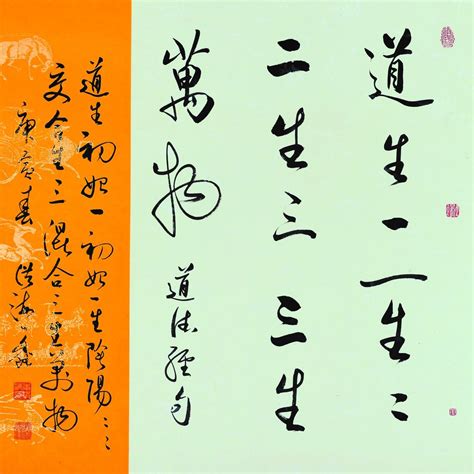 道生一一生二
二生三三生
萬物
道德經句
道生初始一初始一生陰陽二二
交合生三混合三生萬物
庚寅春